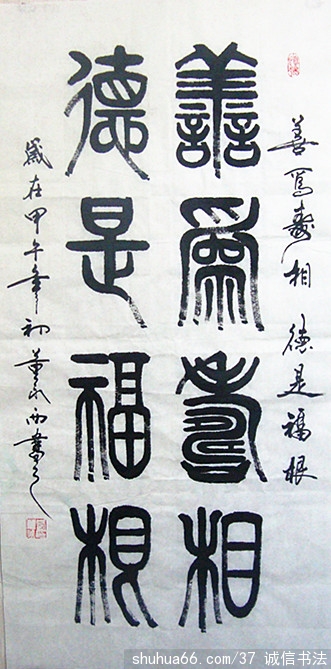 善爲壽相 德是福根
善爲壽相
德是福根
歲在甲午年初董
shuhua66.com/37 诚信书法